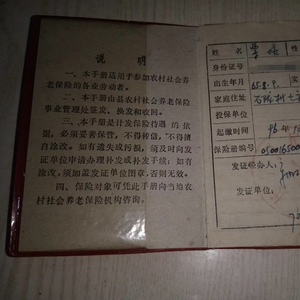 说 明
一、本手册适用于参加农村社会养
老保险的各业劳动者。
二、本手册由县农村社会养老保险
事业管理处签发、换发和收回。
三、本手册是计发保险待遇的依
据,必须妥善保管,不得转借,不得擅
自涂改。如有遗失或污损,须及时向发
证单位申请办理补发或补发手续;如有
涂改,须加盖发证单位图章,否则无效。
四、保险对象可凭此手册向当地农
村社会养老保险机构咨询。
姓 名
身份证号
出生年月
家庭住址
投保单位
起缴时间
保险册编号
发证经办人:
发证单位: